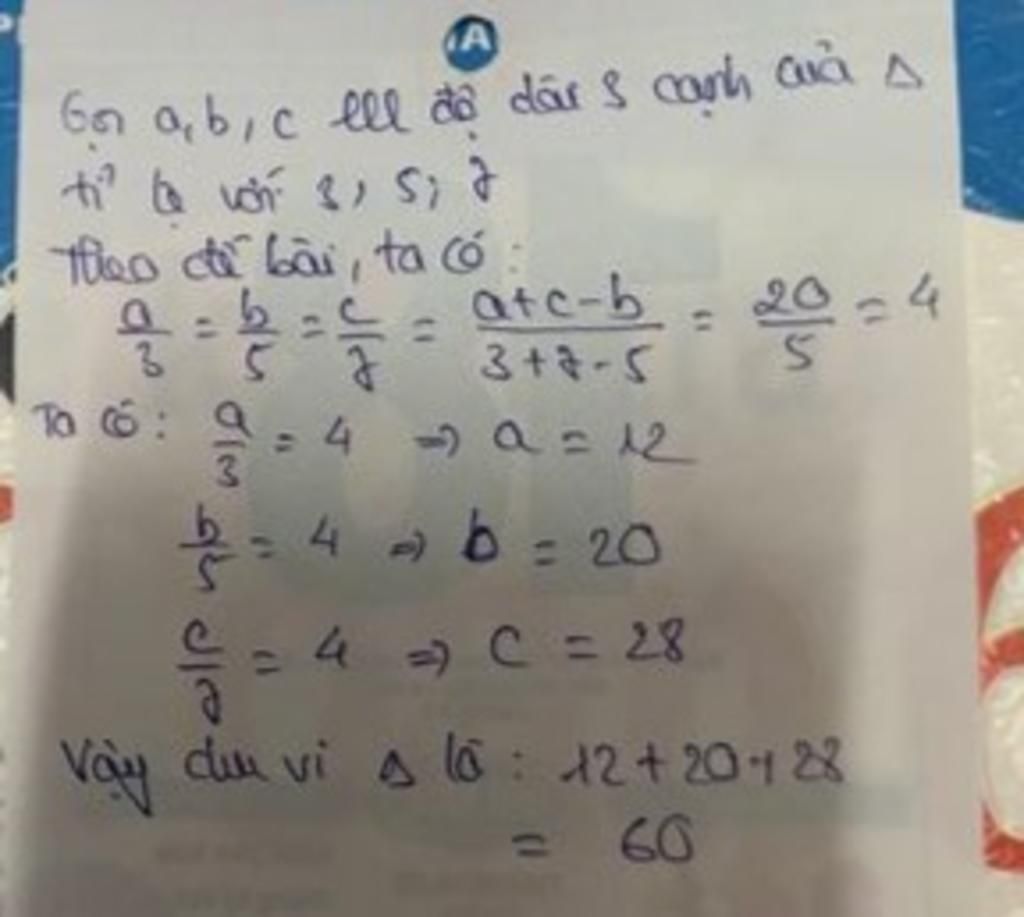 A
Gọi a, b, c lll độ dài 3 cạnh của Δ
tỉ lệ với 3; 5; 7
Theo đề bài, ta có:
a/3 = b/5 = c/7 = (a+c-b)/(3+7-5) = 20/5 = 4
Ta có: a/3 = 4 => a = 12
b/5 = 4 => b = 20
c/7 = 4 => c = 28
Vậy chu vi Δ là: 12+20+28
= 60